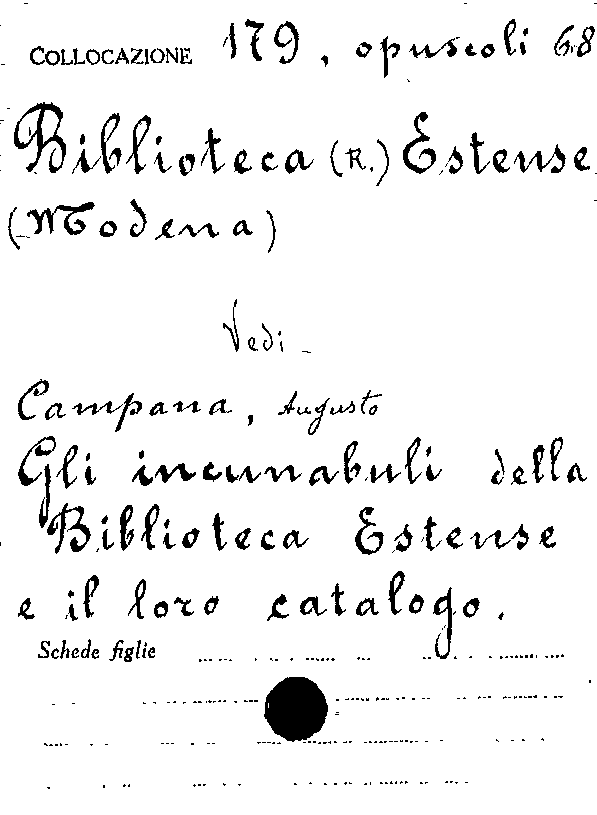 COLLOCAZIONE 179, opuscoli 68
Biblioteca (R.) Estense
(Modena)
Vedi -
Campana, Augusto
Gli incunabuli della
Biblioteca Estense
e il loro catalogo.
Schede figlie